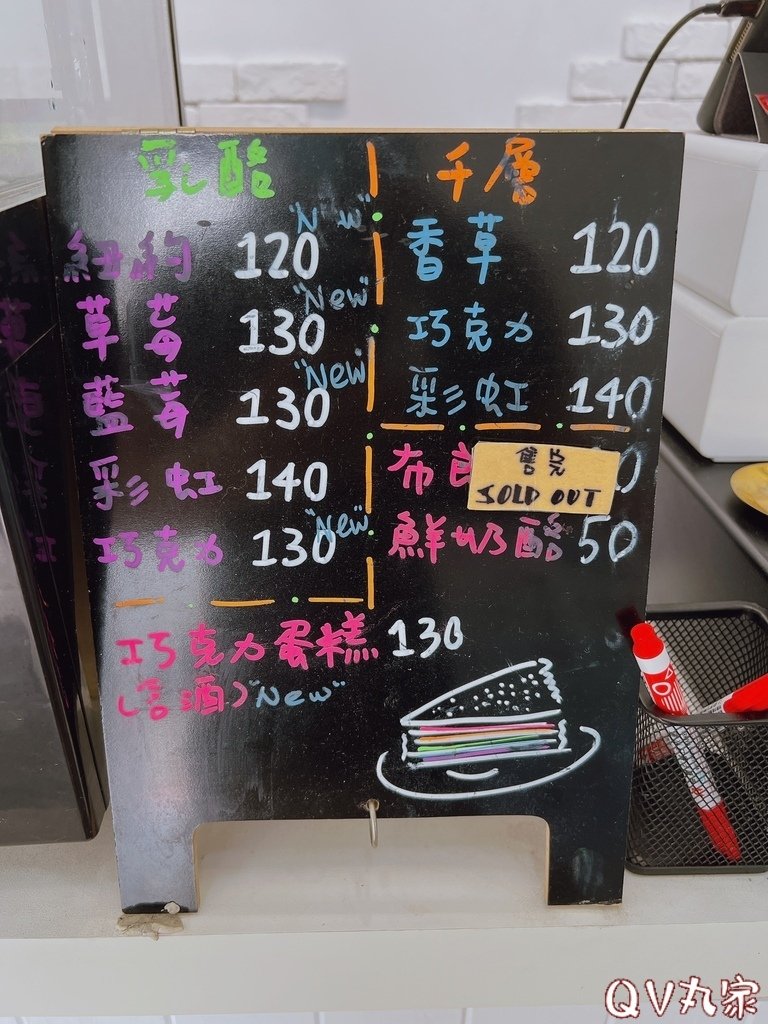 乳酪
紐約 120 "New"
草莓 130 "New"
藍莓 130 "New"
彩虹 140
巧克力 130 "New"
千層
香草 120
巧克力 130
彩虹 140
布
售完
SOLD OUT
0
鮮奶酪 50
巧克力蛋糕 130
(含酒) "New"
QV丸家